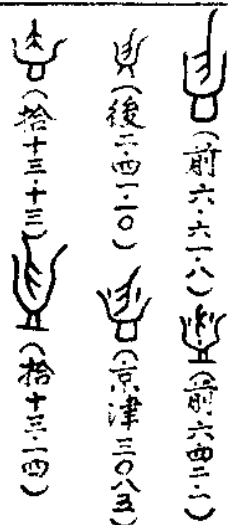 (前六·六一·八) (前六四二·一)
(後二·四一·一〇) (京津三〇八五)
(拾十三·十三) (拾十三·一四)